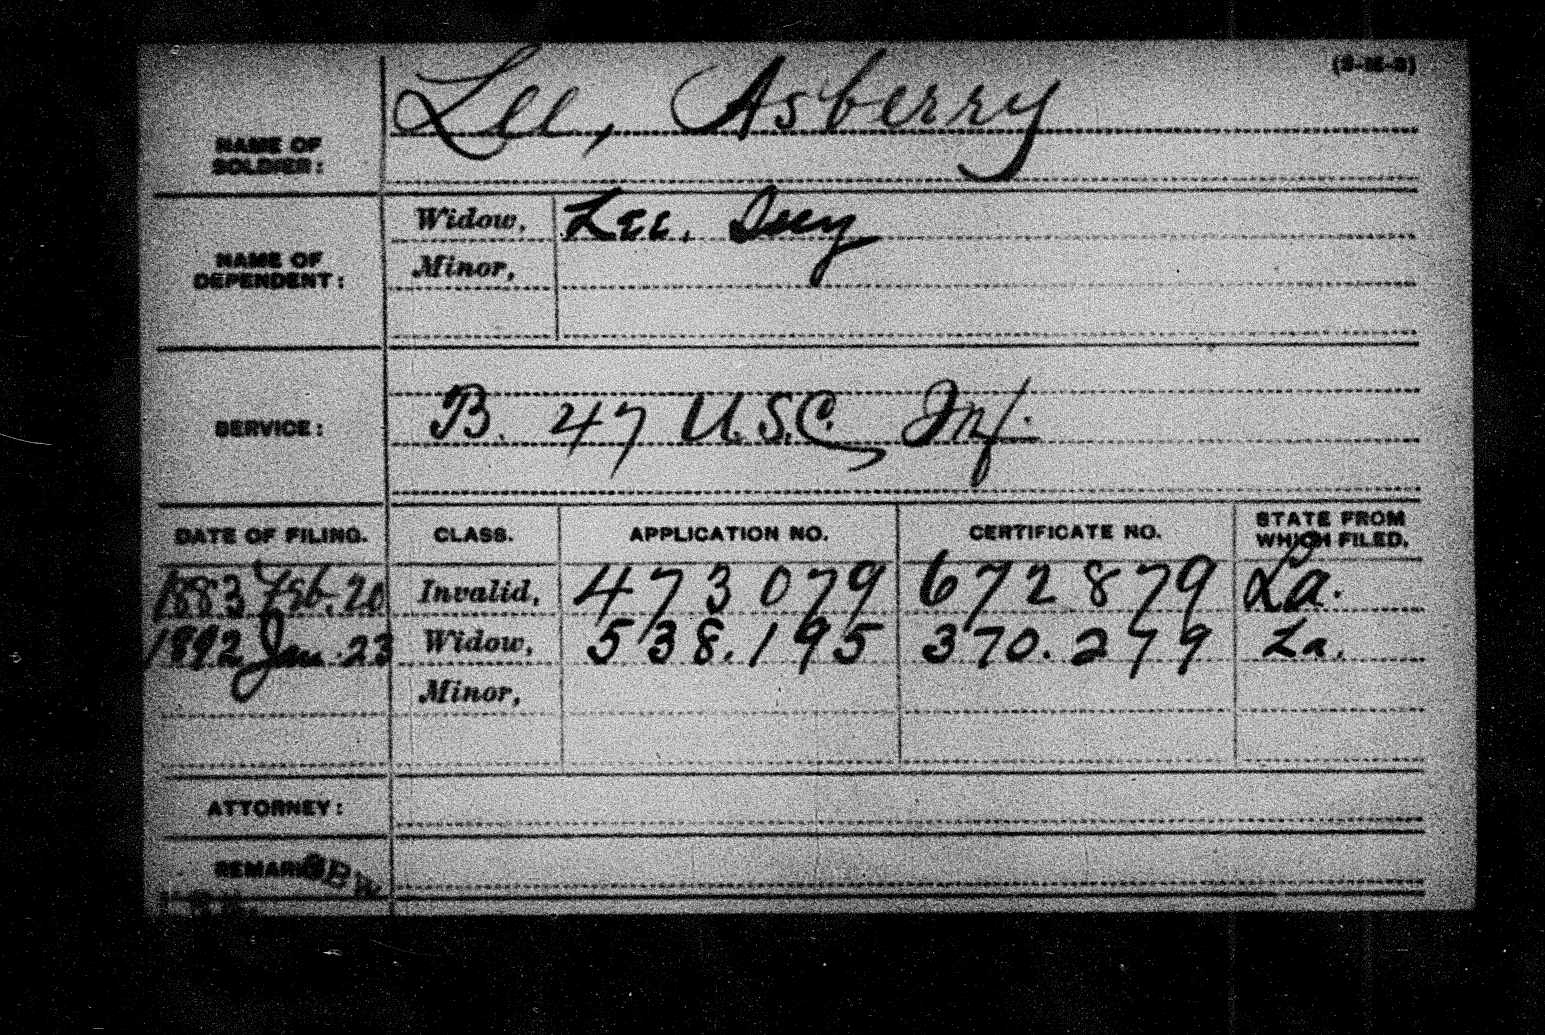 NAME OF SOLDIER: Lee, Asberry
NAME OF DEPENDENT:
Widow, Lee.
Minor,
SERVICE: B. 47 U.S.C. Inf.
DATE OF FILING. CLASS. APPLICATION NO. CERTIFICATE NO. STATE FROM WHICH FILED.
1883 Feb. 20 Invalid, 473079 672879 La.
1892 Jan. 23 Widow, 538.195 370.279 La.
Minor,
ATTORNEY:
REMARKS